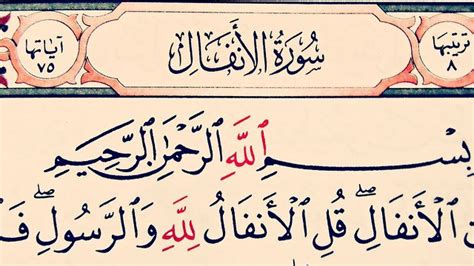 ترتيبها ٨ سُورَةُ الأَنفَال آياتها ٧٥
بِسْمِ اللَّهِ الرَّحْمَٰنِ الرَّحِيمِ
الْأَنفَالِ ۖ قُلِ الْأَنفَالُ لِلَّهِ وَالرَّسُولِ ۖ